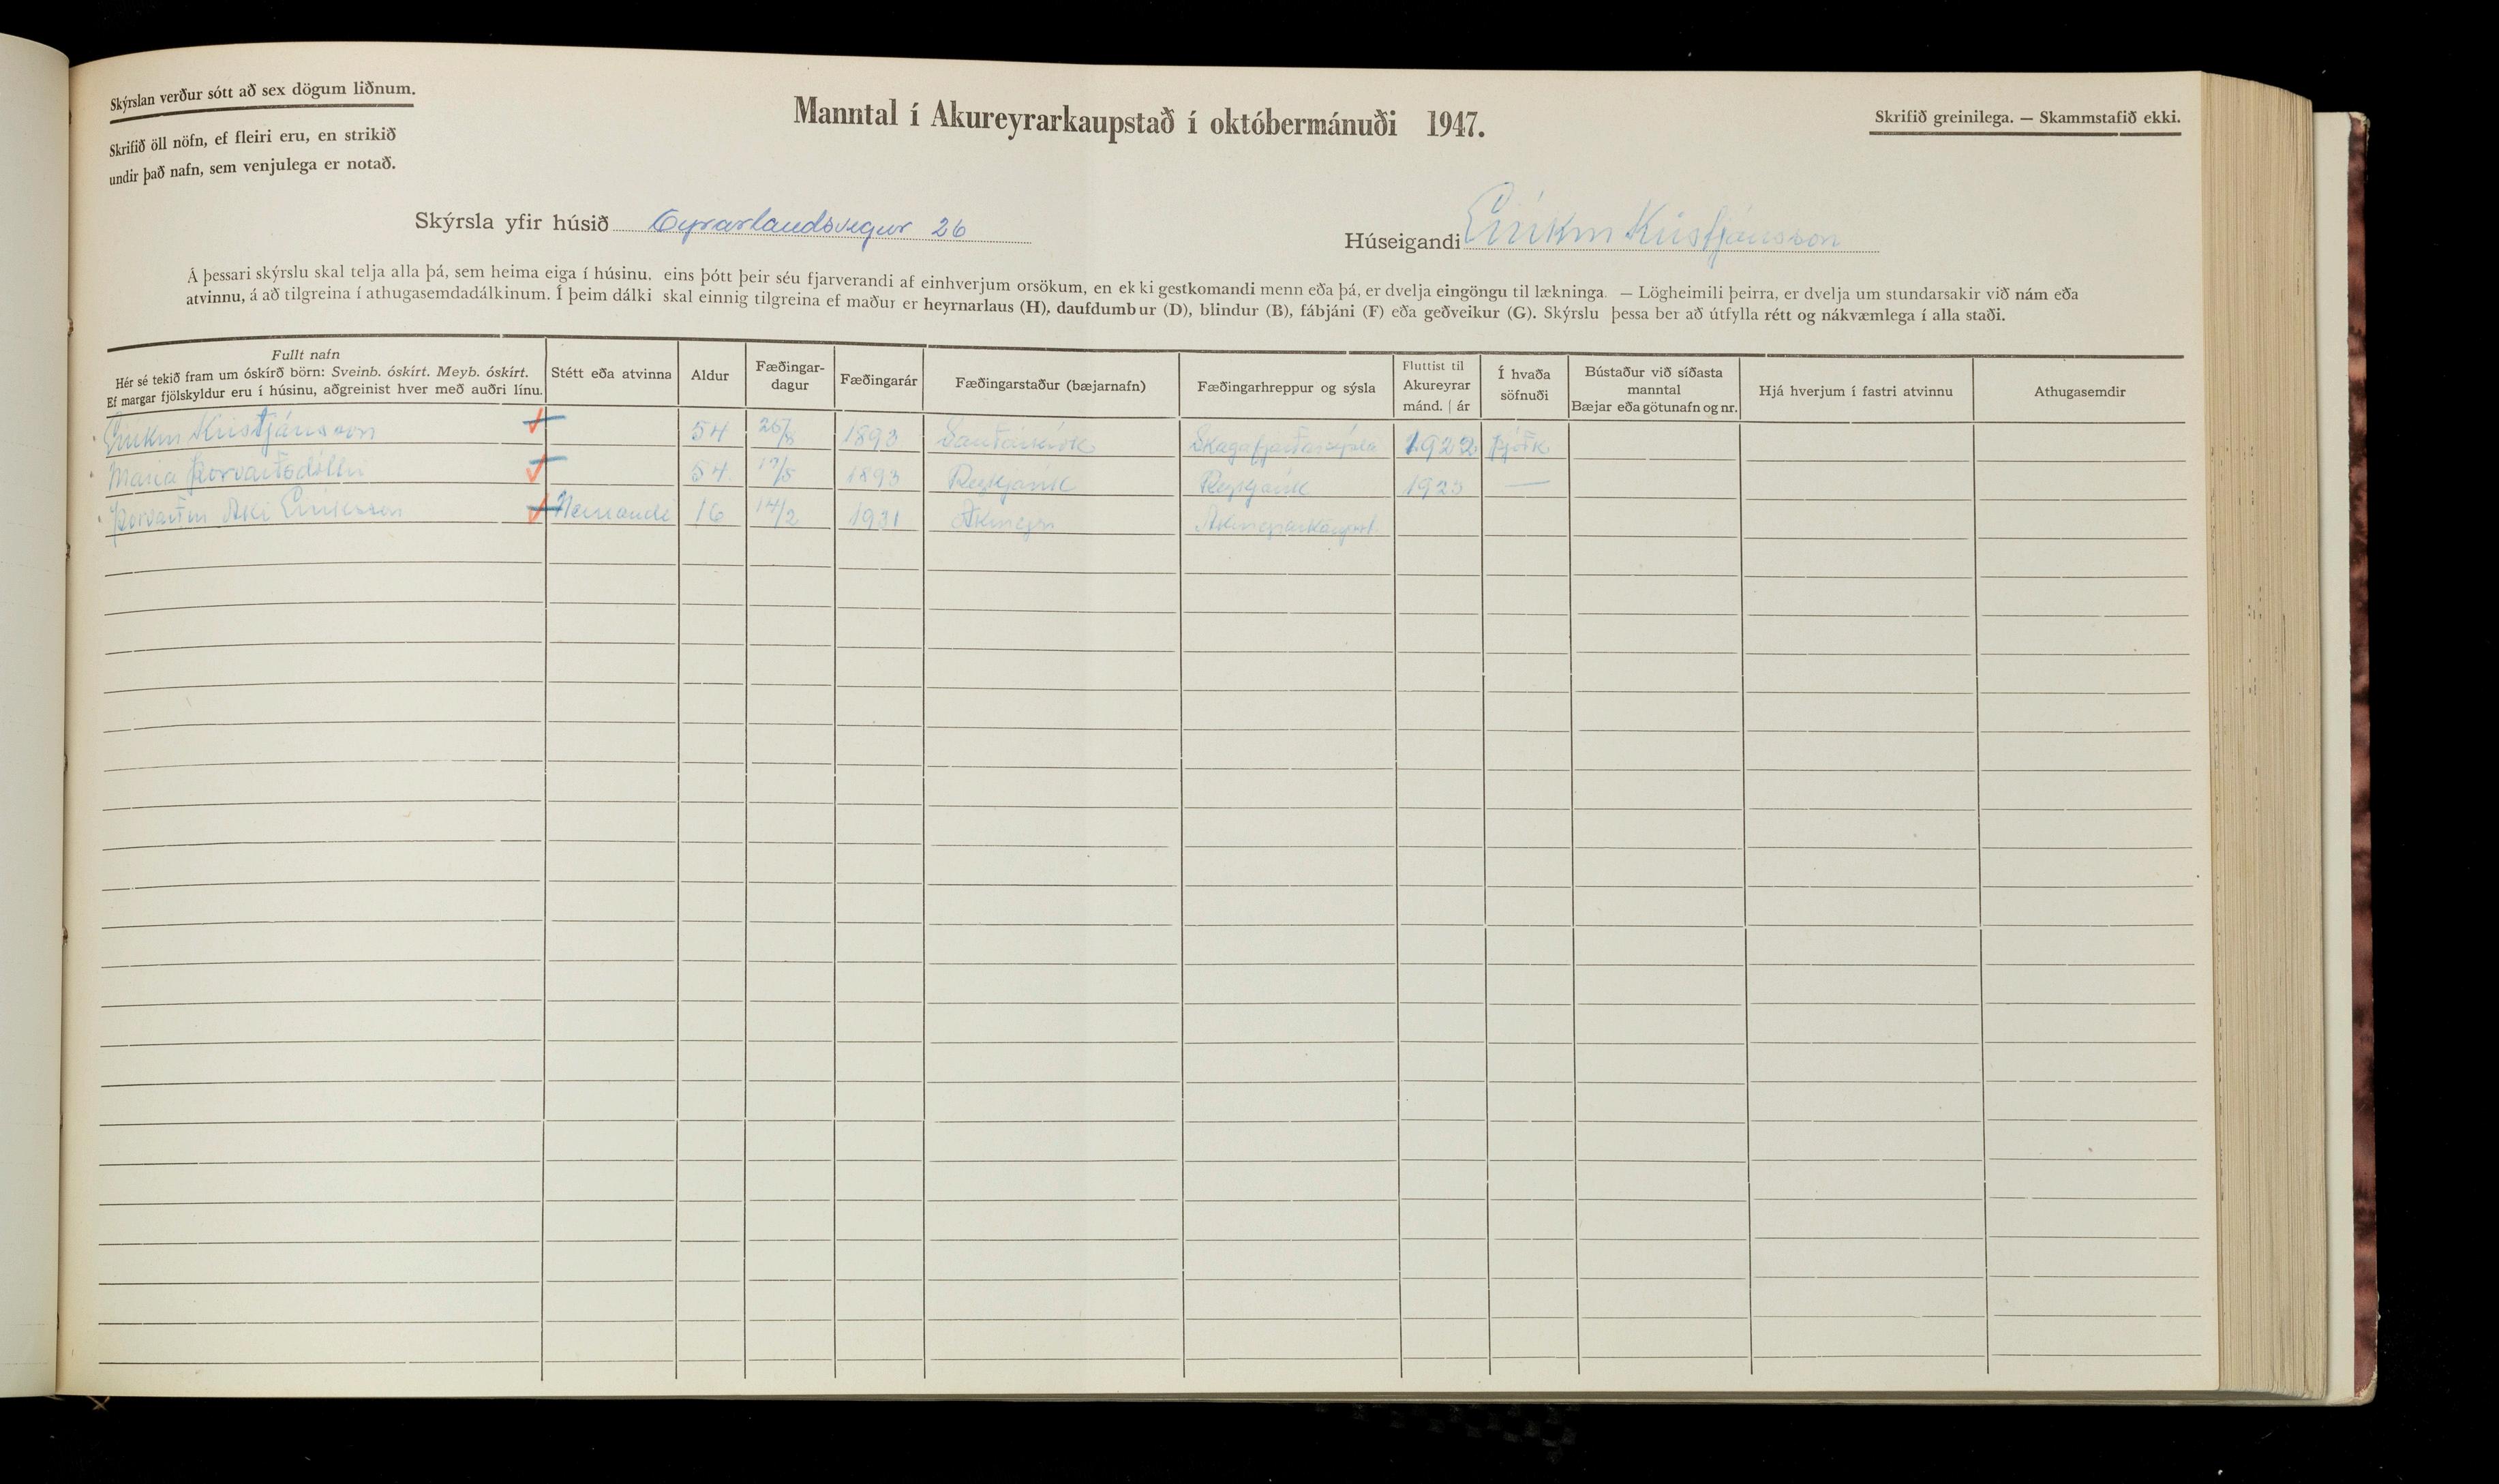 Skýrslan verður sótt að sex dögum liðnum.
Skrifið öll nöfn, ef fleiri eru, en strikið
undir það nafn, sem venjulega er notað.
Manntal í Akureyrarkaupstað í októbermánuði 1947.
Skrifið greinilega. — Skammstafið ekki.
Skýrsla yfir húsið Eyrarlandsvegur 26
Húseigandi Eiríkur Kristjánsson
Á þessari skýrslu skal telja alla þá, sem heima eiga í húsinu, eins þótt þeir séu fjarverandi af einhverjum orsökum, en ekki gestkomandi menn eða þá, er dvelja eingöngu til lækninga. — Lögheimili þeirra, er dvelja um stundarsakir við nám eða
atvinnu, á að tilgreina í athugasemdadálkinum. Í þeim dálki skal einnig tilgreina ef maður er heyrnarlaus (H), daufdumbur (D), blindur (B), fábjáni (F) eða geðveikur (G). Skýrslu þessa ber að útfylla rétt og nákvæmlega í alla staði.
Fullt nafn
Hér sé tekið fram um óskírð börn: Sveinb. óskírt. Meyb. óskírt.
Ef margar fjölskyldur eru í húsinu, aðgreinist hver með auðri línu.
Stétt eða atvinna
Aldur
Fæðingar-
dagur
Fæðingarár
Fæðingarstaður (bæjarnafn)
Fæðingarhreppur og sýsla
Fluttist til
Akureyrar
mánd. | ár
Í hvaða
söfnuði
Bústaður við síðasta
manntal
Bæjar eða götunafn og nr.
Hjá hverjum í fastri atvinnu
Athugasemdir
Eiríkur Kristjánsson 54 26/8 1893 Sauðárkrók Skagafjarðarsýsla 1922 Þjóðk.
María Þorvarðsdóttir 54 17/5 1893 Reykjavík Reykjavík 1923 —
Þorvarður Áki Eiríksson Nemandi 16 14/2 1931 Akureyri Akureyrarkaupst.